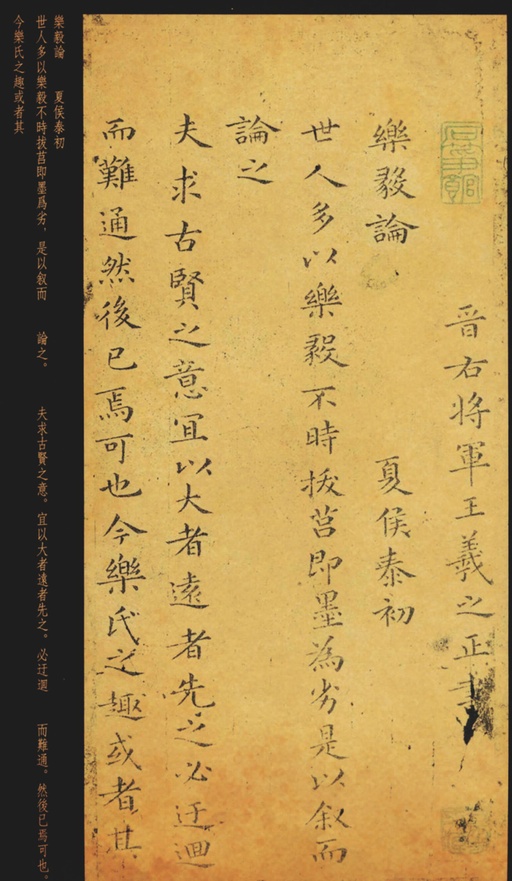 晋右將軍王羲之正書
樂毅論 夏侯泰初
世人多以樂毅不時拔莒即墨為劣是以叙而
論之
夫求古賢之意宜以大者遠者先之必迂迴
而難通然後已焉可也今樂氏之趣或者其
樂毅論 夏侯泰初
世人多以樂毅不時拔莒即墨爲劣，是以叙而 論之。 夫求古賢之意。宜以大者遠者先之。必迂迴 而難通。然後已焉可也。
今樂氏之趣或者其